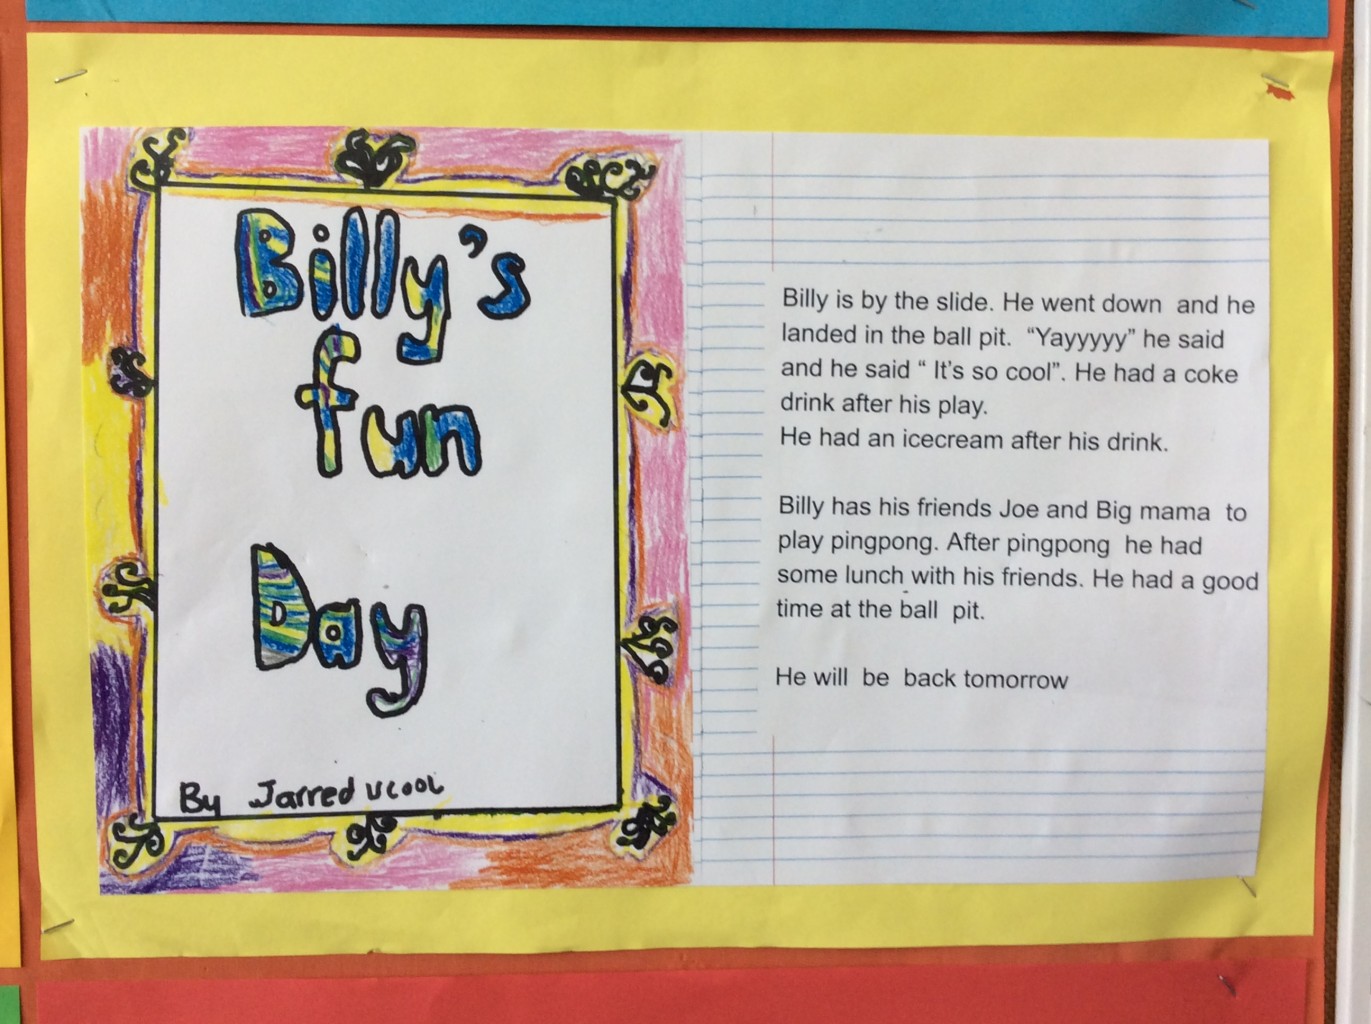 Billy's
fun
Day
By Jarred Ucool
Billy is by the slide. He went down and he
landed in the ball pit. “Yayyyyy” he said
and he said “ It’s so cool”. He had a coke
drink after his play.
He had an icecream after his drink.
Billy has his friends Joe and Big mama to
play pingpong. After pingpong he had
some lunch with his friends. He had a good
time at the ball pit.
He will be back tomorrow